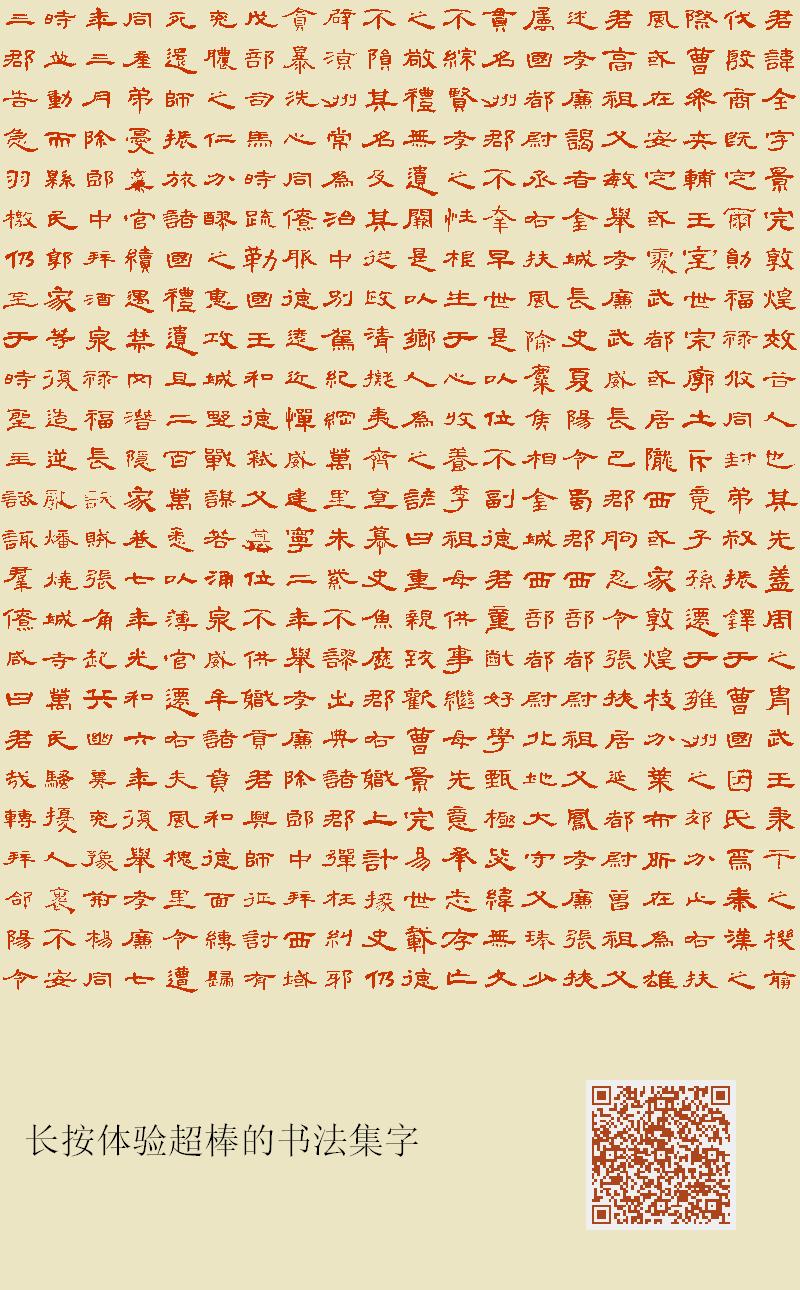 君諱全字景完敦煌效谷人也其先蓋周之冑武王秉干之機翦
伐殷商既定爾勛福祿攸同封弟叔振鐸于曹國因氏焉秦漢之
際曹參夾輔王室世宗廓土斥竟子孫遷于雍州之郊分止右扶
風或在安定或處武都或居隴西或家敦煌枝分葉布所在為雄
君高祖父敏舉孝廉武威長巴郡朐忍令張掖居延都尉曾祖父
述孝廉謁者金城長史夏陽令蜀郡西部都尉祖父鳳孝廉張掖
屬國都尉丞右扶風隃麋侯相金城西部都尉北地大守父琫少
貫名州郡不幸早世是以位不副德君童齔好學甄極毖緯無文
不綜賢孝之性根生于心收養季祖母供事繼母先意承志存亡
之敬禮無遺闕是以鄉人為之諺曰重親致歡曹景完易世載德
不隕其名及其從政清擬夷齊直慕史魚歷郡右職上計掾史仍
辟涼州常為治中別駕紀綱萬里朱紫不謬出典諸郡彈枉糾邪
貪暴洗心同僚服德遠近憚威建寧二年舉孝廉除郎中拜西域
戊部司馬時疏勒國王和德弒父篡位不供職貢君興師征討有
兗膿之仁分醪之惠攻城野戰謀若涌泉威牟諸賁和德面縛歸
死還師振旅諸國禮遺且二百萬悉以薄官遷右扶風槐里令遭
同產弟憂棄官續遇禁网潛隱家巷七年光和六年復舉孝廉七
年三月除郎中拜酒泉祿福長訞賊張角起兵幽冀兗豫荊楊同
時並動而縣民郭家等復造逆亂燔燒城寺萬民騷擾人裹不安
三郡告急羽檄仍至于時聖主諮諏群僚咸曰君哉轉拜郃陽令
长按体验超棒的书法集字